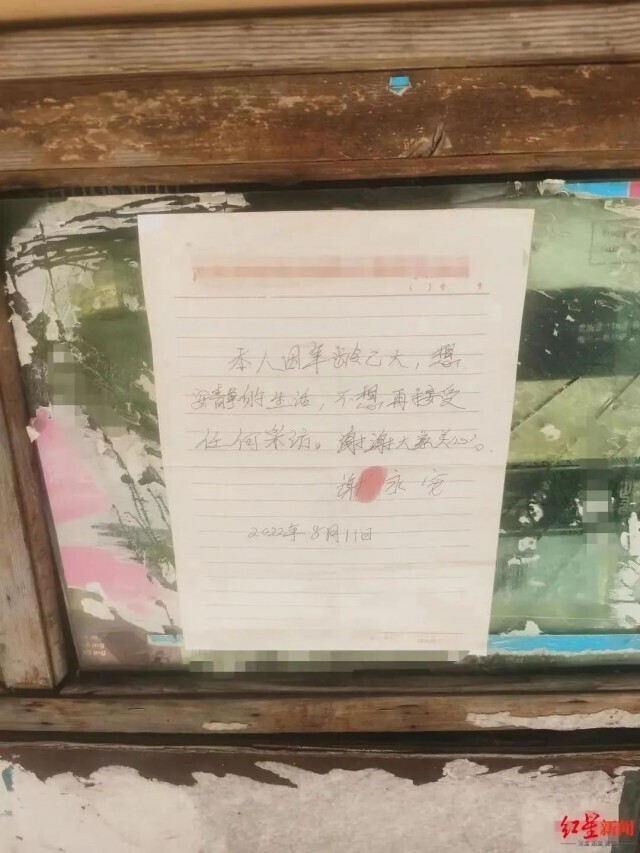 本人因年龄已大，想
安静的生活，不想再接受
任何采访。谢谢大家关心。
谢永宽
2022年8月11日
红星新闻
深度 态度